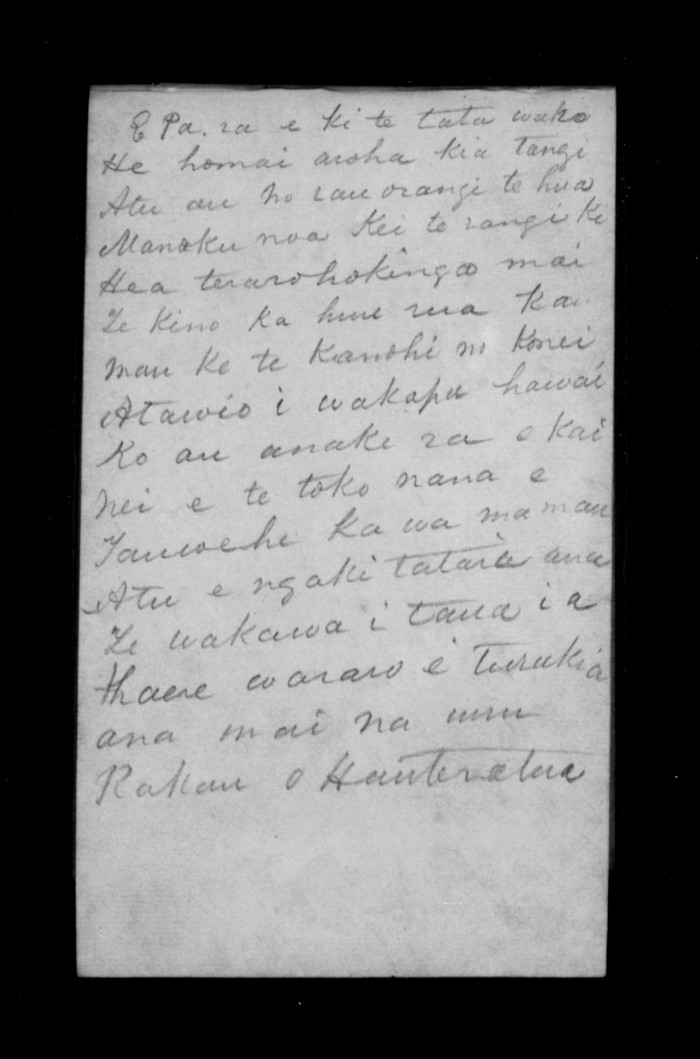 E Pa. ra e ki te tata wako
He homai aroha kia tangi
Atu au no rau orangi te hua
Manoku noa Kei te rangi ki
Hea terarohokinga mai
Te kino ka hue rua Ka
mau ke te Kanohi no Konei
Atawio i wakapu hawai
Ko au anake ra e kai
nei e te toko nana e
Tauwehe ka wa ma mau
Atu e ngaki tatara ana
Te wakawa i taua i a
Haere waraw e turukia
ana mai na
Rakau o Hauteratua